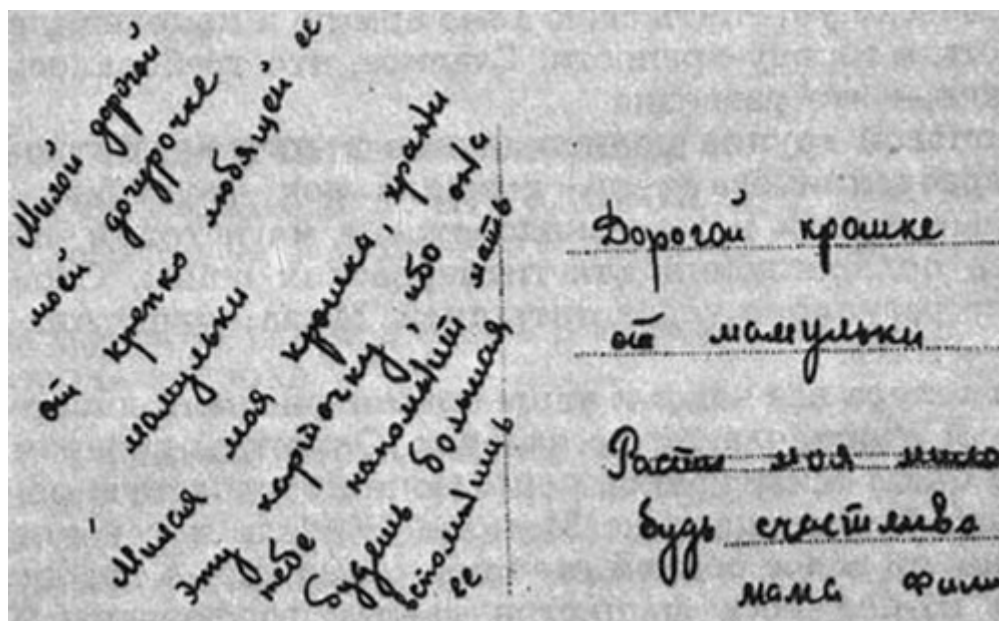 Милой дорогой
моей дочурочке
от крепко любящей ее
мамульки
Милая моя крошка, храни
эту карточку, ибо она
тебе напомнит мать
будешь большая
вспомнишь
ее
Дорогой крошке
от мамульки
Расти моя мило
будь счастлива
мама Фили